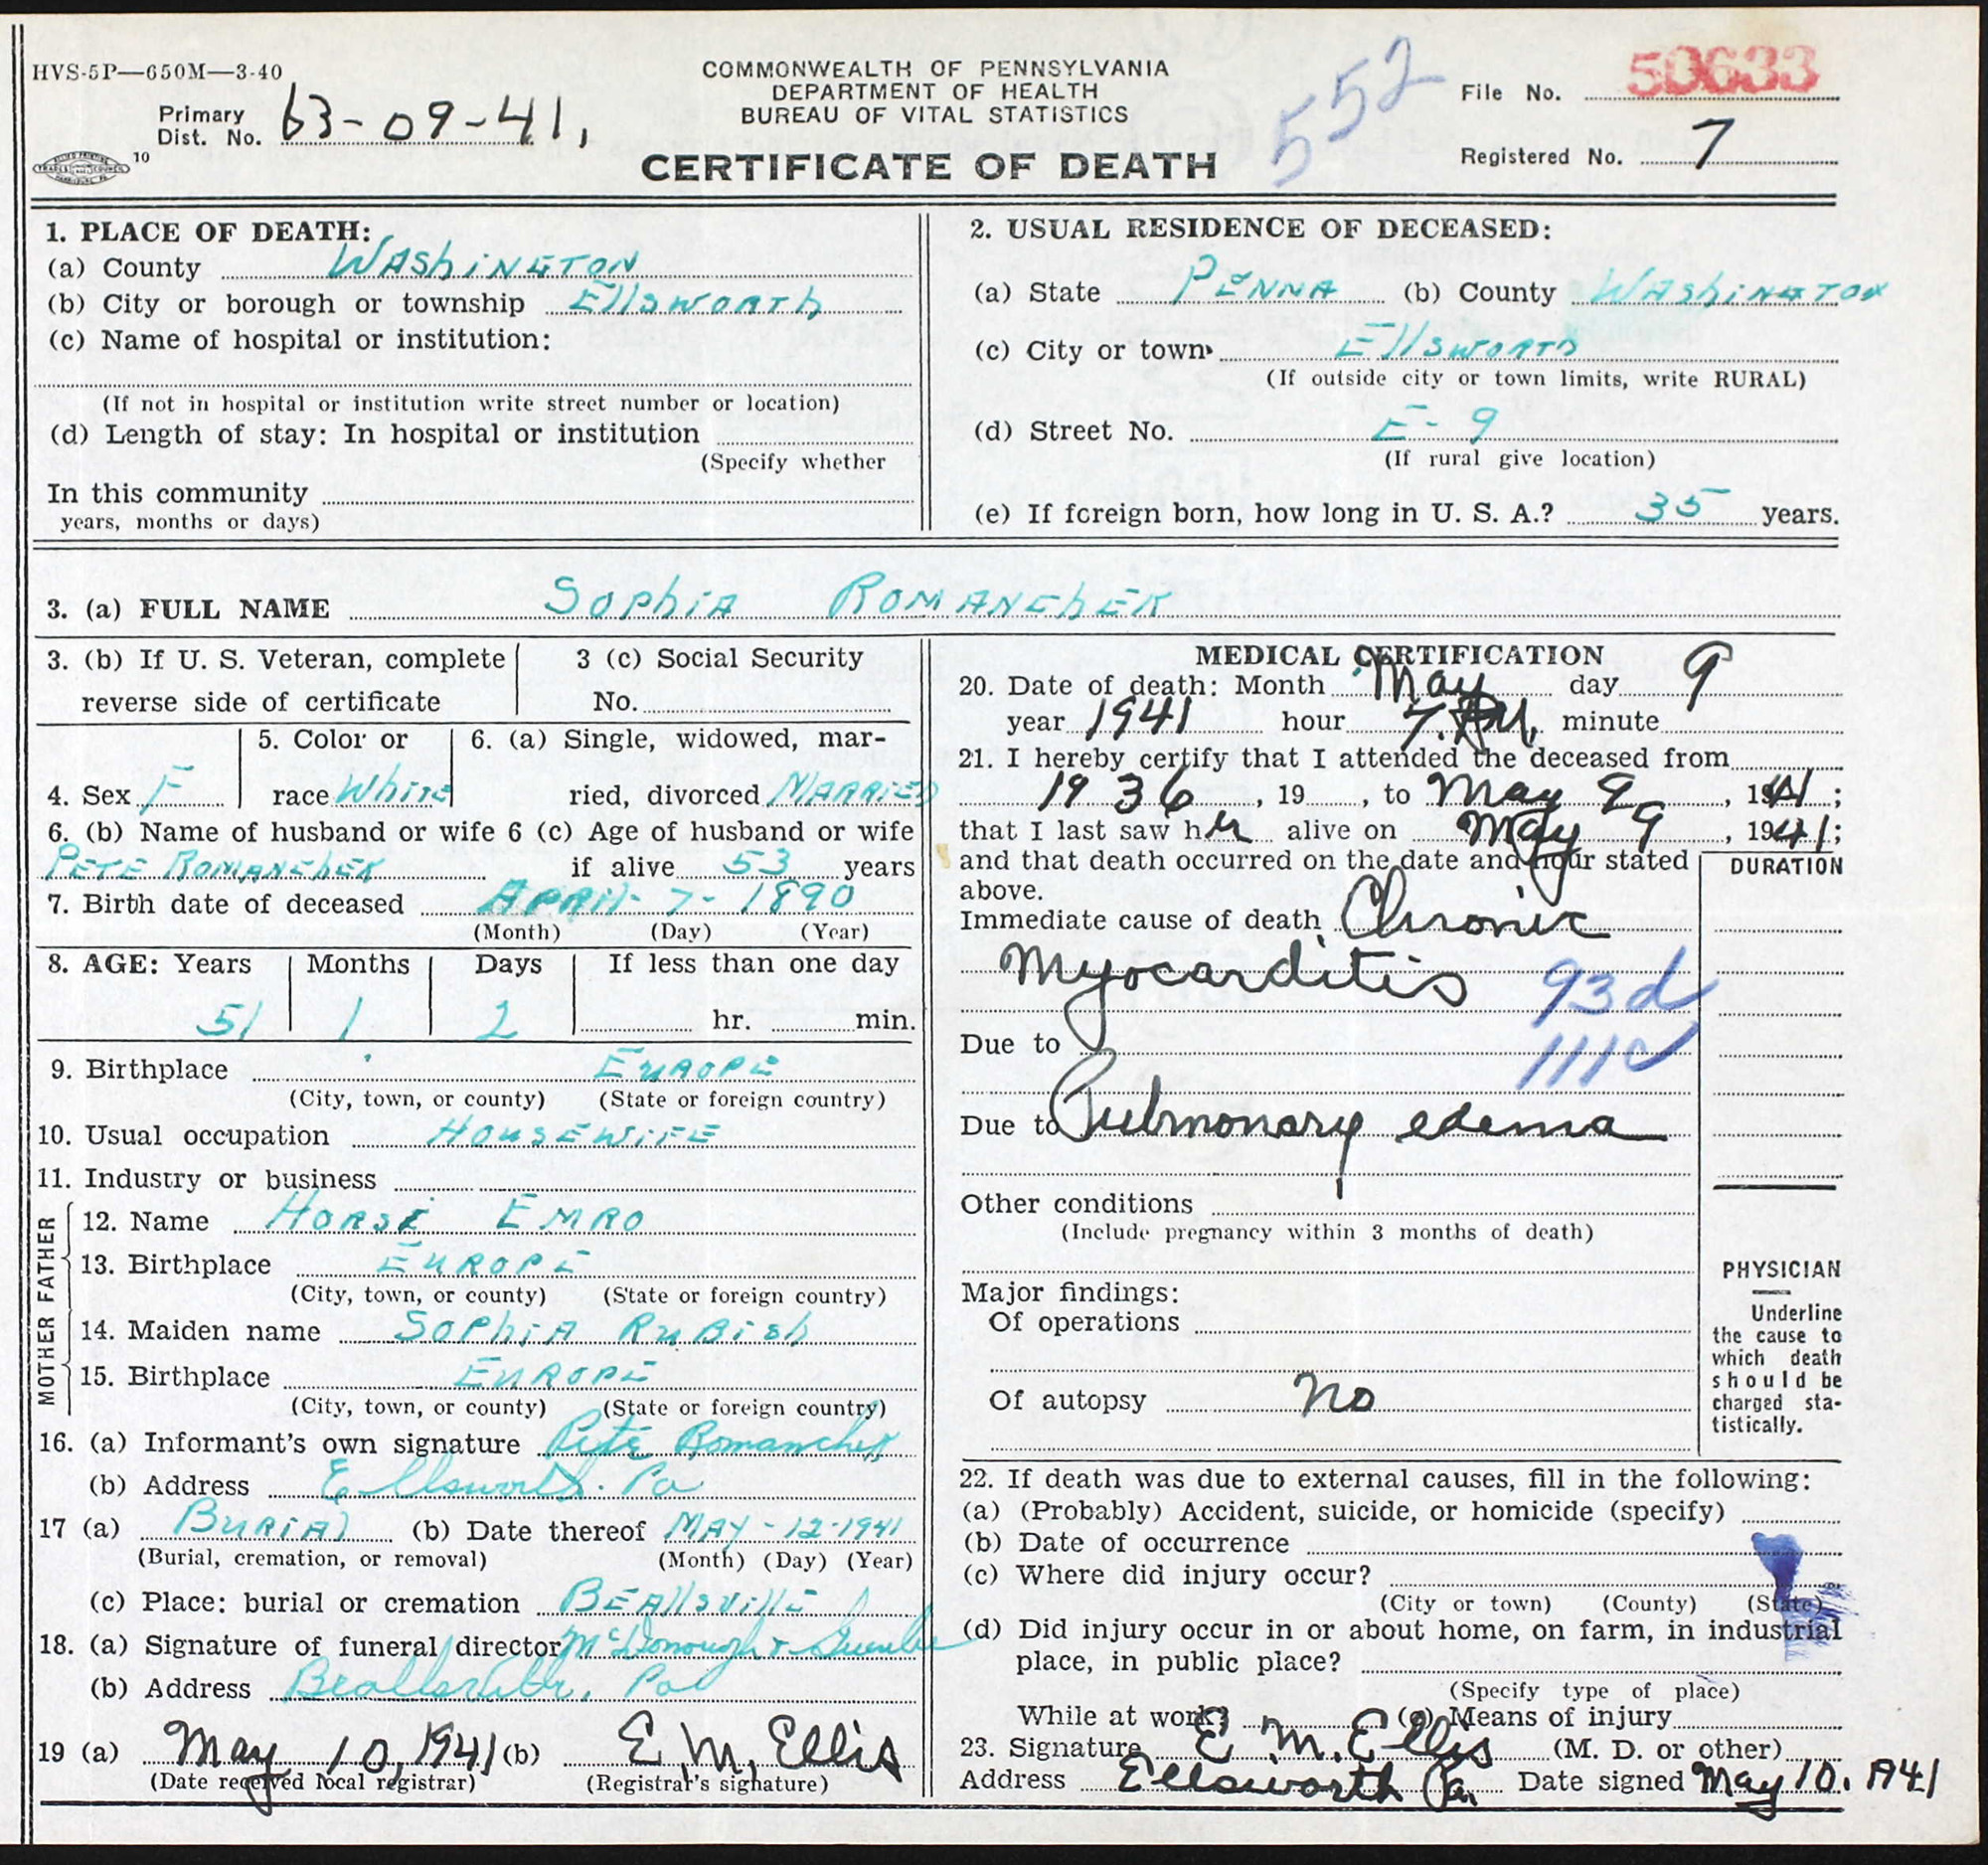 HVS-5P—650M—3-40
COMMONWEALTH OF PENNSYLVANIA
DEPARTMENT OF HEALTH
BUREAU OF VITAL STATISTICS
CERTIFICATE OF DEATH
Primary Dist. No. 63-09-41,
10
552
File No. 50633
Registered No. 7
1. PLACE OF DEATH:
(a) County WAShiNGTON
(b) City or borough or township EllswoRTh
(c) Name of hospital or institution:
(If not in hospital or institution write street number or location)
(d) Length of stay: In hospital or institution
(Specify whether
In this community
years, months or days)
2. USUAL RESIDENCE OF DECEASED:
(a) State PENNA (b) County WAShiNGTON
(c) City or town EllswoRTh
(If outside city or town limits, write RURAL)
(d) Street No. E-9
(If rural give location)
(e) If foreign born, how long in U. S. A.? 35 years.
3. (a) FULL NAME SophiA ROMANChEK
3. (b) If U. S. Veteran, complete
reverse side of certificate
3 (c) Social Security
No.
4. Sex F
5. Color or
race White
6. (a) Single, widowed, mar-
ried, divorced MARRIED
6. (b) Name of husband or wife
PETE ROMANChEK
6 (c) Age of husband or wife
if alive 53 years
7. Birth date of deceased APRIL- 7- 1890
(Month) (Day) (Year)
8. AGE: Years Months Days If less than one day
51 1 2 hr. min.
9. Birthplace EUROPE
(City, town, or county) (State or foreign country)
10. Usual occupation HOUSEWIFE
11. Industry or business
FATHER
12. Name HORSE EMRO
13. Birthplace EUROPE
(City, town, or county) (State or foreign country)
MOTHER
14. Maiden name SOPhiA RuBish
15. Birthplace EUROPE
(City, town, or county) (State or foreign country)
16. (a) Informant's own signature Pete Romanchek
(b) Address Ellsworth. Pa
17 (a) BURIAl (b) Date thereof MAY-12-1941
(Burial, cremation, or removal) (Month) (Day) (Year)
(c) Place: burial or cremation BEAllsvillE
18. (a) Signature of funeral director McDonough &
(b) Address Beallsville, Pa
19 (a) May 10, 1941 (b) E. M. Ellis
(Date received local registrar) (Registrar's signature)
MEDICAL CERTIFICATION
20. Date of death: Month May day 9
year 1941 hour 7. minute
21. I hereby certify that I attended the deceased from
1936, 19 , to May 9, 1941;
that I last saw her alive on May 9, 1941;
and that death occurred on the date and hour stated
above.
DURATION
Immediate cause of death Chronic
Myocarditis
93d
Due to
111c
Due to Pulmonary edema
Other conditions
(Include pregnancy within 3 months of death)
Major findings:
Of operations
Of autopsy no
PHYSICIAN
Underline
the cause to
which death
should be
charged sta-
tistically.
22. If death was due to external causes, fill in the following:
(a) (Probably) Accident, suicide, or homicide (specify)
(b) Date of occurrence
(c) Where did injury occur?
(City or town) (County) (State)
(d) Did injury occur in or about home, on farm, in industrial
place, in public place?
(Specify type of place)
While at work? (e) Means of injury
23. Signature E. M. Ellis (M. D. or other)
Address Ellsworth Pa. Date signed May 10. 1941